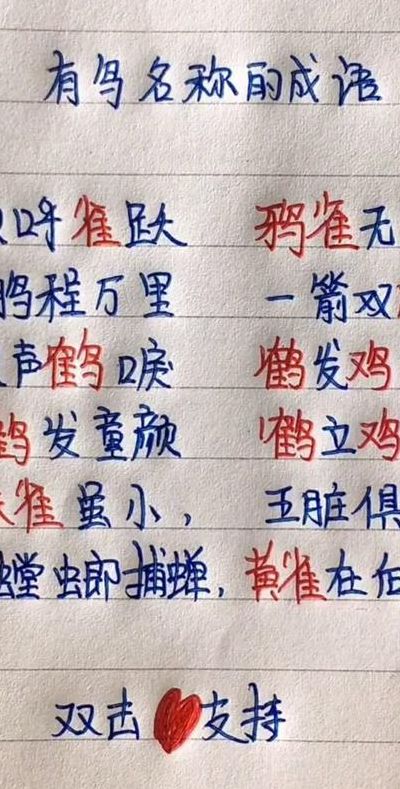 有鸟名称的成语
呼雀跃 鸦雀无
鹏程万里 一箭双
声鹤唳 鹤发鸡
鹤发童颜 鹤立鸡
雀虽小， 五脏俱
螳螂捕蝉， 黄雀在
双击支持